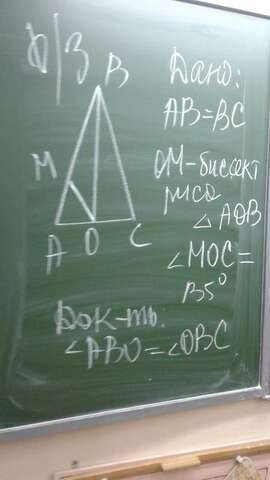 Д/З
B
M
A
O
C
Дано:
AB=BC
OM-биссект
риса
△ AOB
∠MOC=
135°
Док-ть.
∠ABO=∠OBC